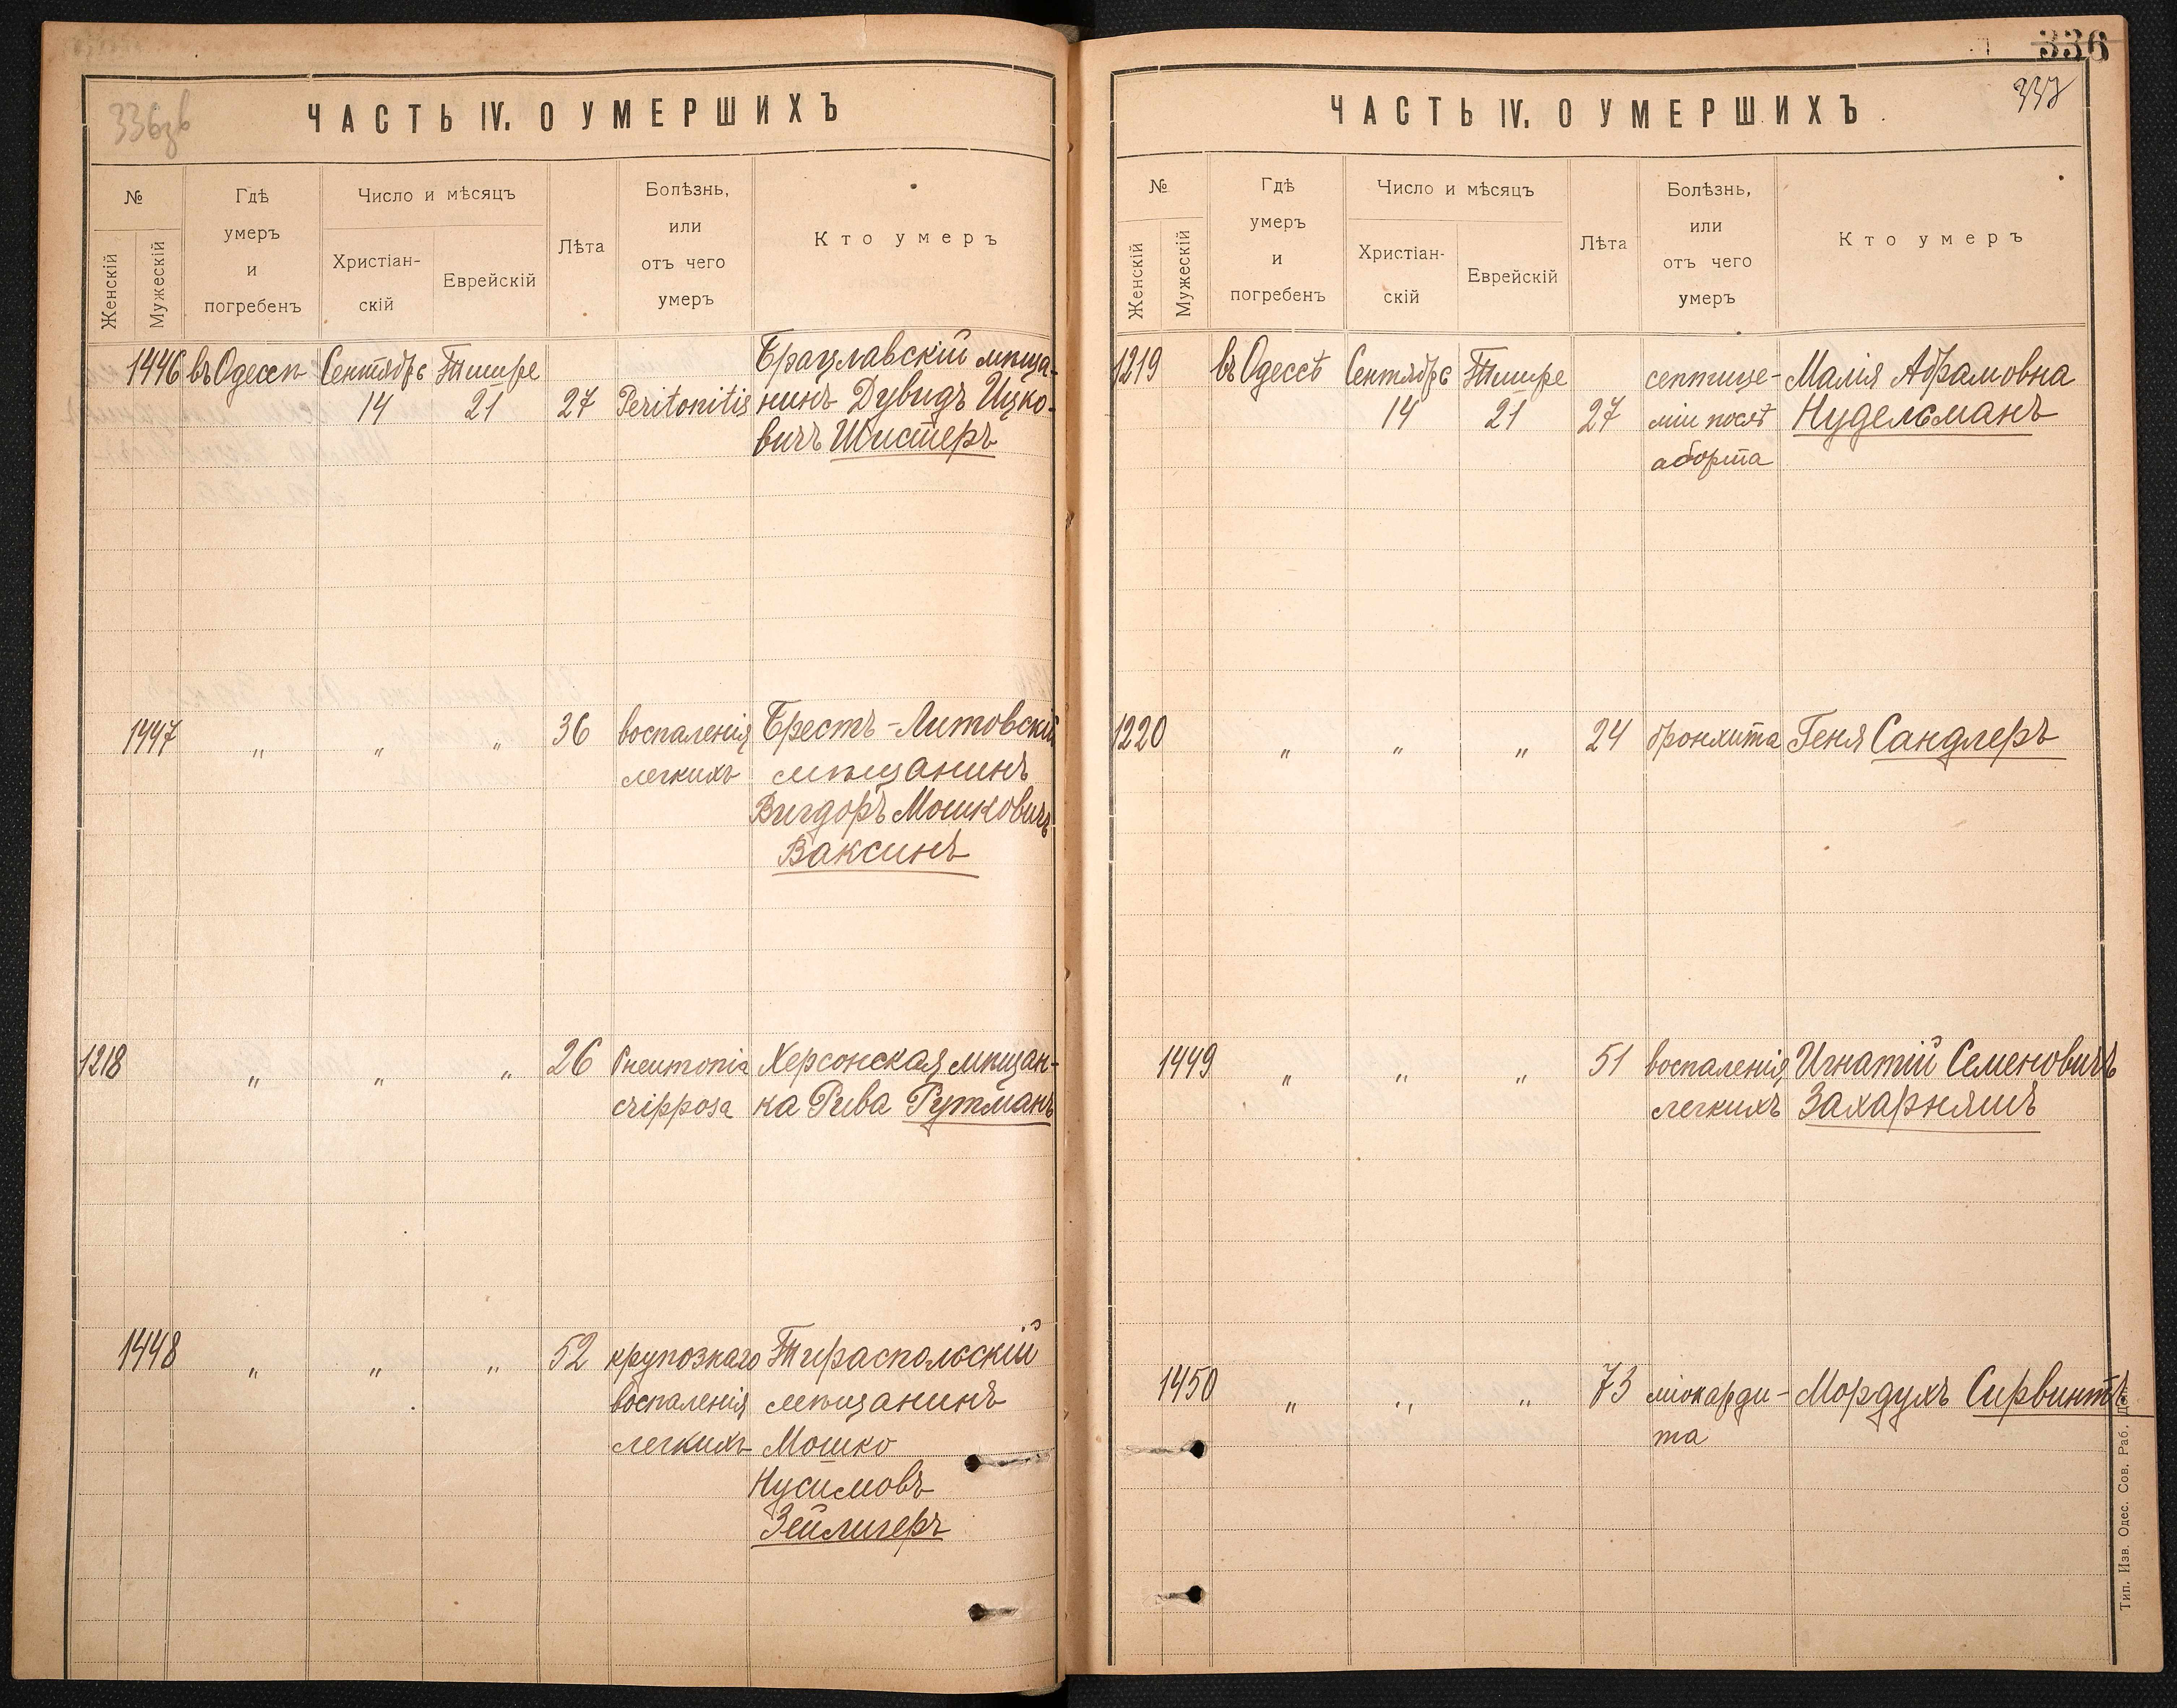 336зв
ЧАСТЬ IV. О УМЕРШИХЪ
№
Женскій
Мужескій
Гдѣ
умеръ
и
погребенъ
Число и мѣсяцъ
Христіан-
скій
Еврейскій
Лѣта
Болѣзнь,
или
отъ чего
умеръ
Кто умеръ
1446 въ Одессѣ Сентябрь Тишре Брацлавскій мѣща-
14 21 27 Peritonitis нинъ Дувидъ Ицко-
вичъ Шистеръ
1447 „ „ „ 36 воспаленія Брестъ-Литовскій
легкихъ мѣщанинъ
Вигдоръ Мошковичъ
Ваксинъ
1218 „ „ „ 26 Pneumonia Херсонская мѣщан-
cripposa ка Рива Рутманъ
1448 „ „ „ 52 крупознаго Тираспольскій
воспаленія мѣщанинъ
легкихъ Мошко
Нусимовъ
Зейлигеръ
336
337
ЧАСТЬ IV. О УМЕРШИХЪ
№
Женскій
Мужескій
Гдѣ
умеръ
и
погребенъ
Число и мѣсяцъ
Христіан-
скій
Еврейскій
Лѣта
Болѣзнь,
или
отъ чего
умеръ
Кто умеръ
1219 въ Одессѣ Сентябрь Тишре септице- Малія Абрамовна
14 21 27 міи послѣ Нудельманъ
аборта
1220 „ „ „ 24 бронхита Геня Сандлеръ
1449 „ „ „ 51 воспаленія Игнатій Семеновичъ
легкихъ Захарняшъ
1450 „ „ „ 73 міокарди- Мордухъ Сирвинтъ
та
Тип. Изв. Одес. Сов. Раб. Деп.